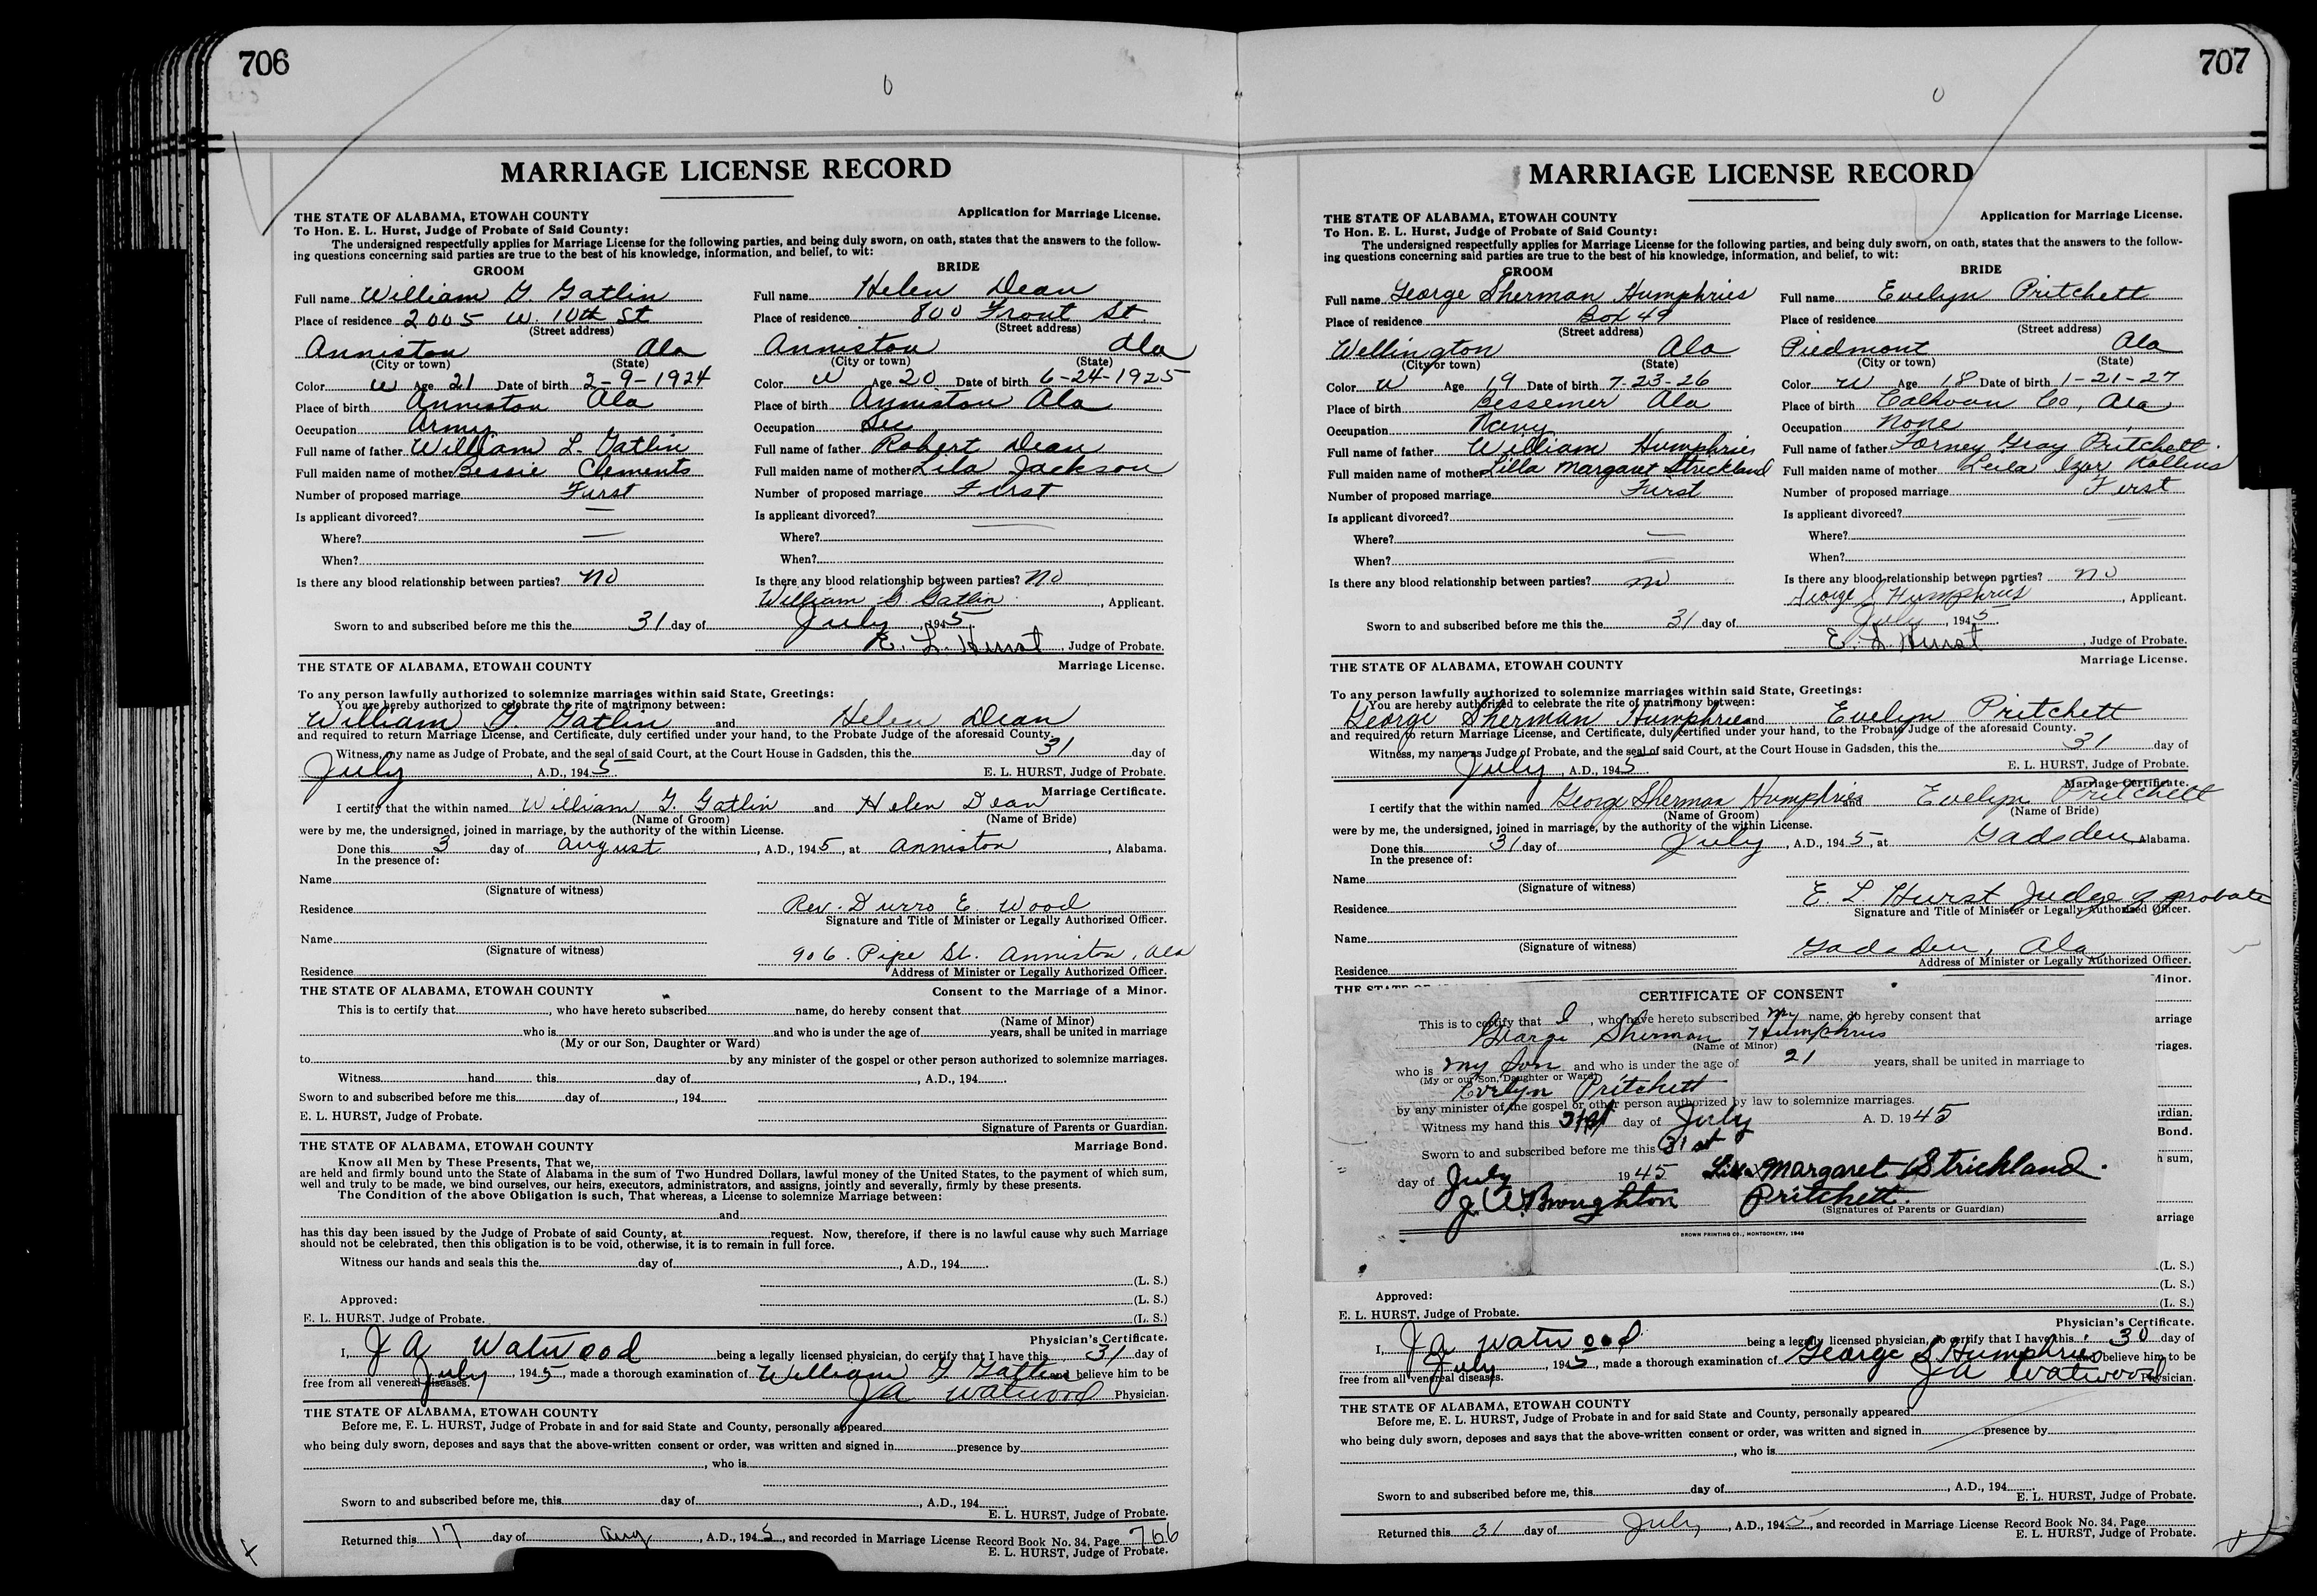 706
MARRIAGE LICENSE RECORD
THE STATE OF ALABAMA, ETOWAH COUNTY Application for Marriage License.
To Hon. E. L. Hurst, Judge of Probate of Said County:
The undersigned respectfully applies for Marriage License for the following parties, and being duly sworn, on oath, states that the answers to the follow-
ing questions concerning said parties are true to the best of his knowledge, information, and belief, to wit:
GROOM
Full name William G Gatlin
Place of residence 2005 W. 10th St
(Street address)
Anniston Ala
(City or town) (State)
Color W Age 21 Date of birth 2-9-1924
Place of birth Anniston Ala
Occupation Army
Full name of father William L. Gatlin
Full maiden name of mother Bessie Clements
Number of proposed marriage First
Is applicant divorced? —
Where? —
When?
Is there any blood relationship between parties? no
BRIDE
Full name Helen Dean
Place of residence 800 Front St.
(Street address)
Anniston Ala
(City or town) (State)
Color W Age 20 Date of birth 6-24-1925
Place of birth Anniston Ala
Occupation Sec
Full name of father Robert Dean
Full maiden name of mother Lila Jackson
Number of proposed marriage First
Is applicant divorced? —
Where?
When?
Is there any blood relationship between parties? no
William G. Gatlin, Applicant.
Sworn to and subscribed before me this the 31 day of July, 1945.
E. L. Hurst, Judge of Probate.
THE STATE OF ALABAMA, ETOWAH COUNTY Marriage License.
To any person lawfully authorized to solemnize marriages within said State, Greetings:
You are hereby authorized to celebrate the rite of matrimony between:
William G. Gatlin and Helen Dean
and required to return Marriage License, and Certificate, duly certified under your hand, to the Probate Judge of the aforesaid County.
Witness, my name as Judge of Probate, and the seal of said Court, at the Court House in Gadsden, this the 31 day of
July, A.D., 1945. E. L. HURST, Judge of Probate.
Marriage Certificate.
I certify that the within named William G. Gatlin and Helen Dean
(Name of Groom) (Name of Bride)
were by me, the undersigned, joined in marriage, by the authority of the within License.
Done this 3 day of August, A.D., 1945, at Anniston, Alabama.
In the presence of:
Name
(Signature of witness)
Residence Rev. Durro E. Wood
Signature and Title of Minister or Legally Authorized Officer.
Name
(Signature of witness)
906. Pipe St. Anniston, Ala
Residence Address of Minister or Legally Authorized Officer.
THE STATE OF ALABAMA, ETOWAH COUNTY Consent to the Marriage of a Minor.
This is to certify that, who have hereto subscribed name, do hereby consent that
(Name of Minor)
who is and who is under the age of years, shall be united in marriage
(My or our Son, Daughter or Ward)
to by any minister of the gospel or other person authorized to solemnize marriages.
Witness hand this day of, A.D., 194
Sworn to and subscribed before me this day of, 194
E. L. HURST, Judge of Probate.
Signature of Parents or Guardian.
THE STATE OF ALABAMA, ETOWAH COUNTY Marriage Bond.
Know all Men by These Presents, That we,
are held and firmly bound unto the State of Alabama in the sum of Two Hundred Dollars, lawful money of the United States, to the payment of which sum,
well and truly to be made, we bind ourselves, our heirs, executors, administrators, and assigns, jointly and severally, firmly by these presents.
The Condition of the above Obligation is such, That whereas, a License to solemnize Marriage between:
and
has this day been issued by the Judge of Probate of said County, at request. Now, therefore, if there is no lawful cause why such Marriage
should not be celebrated, then this obligation is to be void, otherwise, it is to remain in full force.
Witness our hands and seals this the day of, A.D., 194
(L. S.)
Approved: (L. S.)
E. L. HURST, Judge of Probate. (L. S.)
Physician's Certificate.
I, J A Watwood being a legally licensed physician, do certify that I have this 31 day of
July, 1945, made a thorough examination of William G Gatlin and believe him to be
free from all venereal diseases. J A Watwood Physician.
THE STATE OF ALABAMA, ETOWAH COUNTY
Before me, E. L. HURST, Judge of Probate in and for said State and County, personally appeared
who being duly sworn, deposes and says that the above-written consent or order, was written and signed in presence by
, who is
Sworn to and subscribed before me, this day of, A.D., 194
E. L. HURST, Judge of Probate.
Returned this 17 day of Aug, A.D., 1945, and recorded in Marriage License Record Book No. 34, Page 706
E. L. HURST, Judge of Probate.
707
MARRIAGE LICENSE RECORD
THE STATE OF ALABAMA, ETOWAH COUNTY Application for Marriage License.
To Hon. E. L. Hurst, Judge of Probate of Said County:
The undersigned respectfully applies for Marriage License for the following parties, and being duly sworn, on oath, states that the answers to the follow-
ing questions concerning said parties are true to the best of his knowledge, information, and belief, to wit:
GROOM
Full name George Sherman Humphries
Place of residence Box 49
(Street address)
Wellington Ala
(City or town) (State)
Color W Age 19 Date of birth 7-23-26
Place of birth Bessemer Ala
Occupation Navy
Full name of father William Humphries
Full maiden name of mother Lilla Margaret Strickland
Number of proposed marriage First
Is applicant divorced?
Where? —
When? —
Is there any blood relationship between parties? no
BRIDE
Full name Evelyn Pritchett
Place of residence
(Street address)
Piedmont Ala
(City or town) (State)
Color W Age 18 Date of birth 1-21-27
Place of birth Calhoun Co, Ala
Occupation None
Full name of father Forney Gray Pritchett
Full maiden name of mother Leila Rollins
Number of proposed marriage First
Is applicant divorced? —
Where?
When?
Is there any blood relationship between parties? no
George S Humphries, Applicant.
Sworn to and subscribed before me this the 31 day of July, 1945.
E. L. Hurst, Judge of Probate.
THE STATE OF ALABAMA, ETOWAH COUNTY Marriage License.
To any person lawfully authorized to solemnize marriages within said State, Greetings:
You are hereby authorized to celebrate the rite of matrimony between:
George Sherman Humphries and Evelyn Pritchett
and required to return Marriage License, and Certificate, duly certified under your hand, to the Probate Judge of the aforesaid County.
Witness, my name as Judge of Probate, and the seal of said Court, at the Court House in Gadsden, this the 31 day of
July, A.D., 1945. E. L. HURST, Judge of Probate.
Marriage Certificate.
I certify that the within named George Sherman Humphries and Evelyn Pritchett
(Name of Groom) (Name of Bride)
were by me, the undersigned, joined in marriage, by the authority of the within License.
Done this 31 day of July, A.D., 1945, at Gadsden, Alabama.
In the presence of:
Name
(Signature of witness)
E. L. Hurst Judge of probate
Residence Signature and Title of Minister or Legally Authorized Officer.
Name
(Signature of witness)
Gadsden, Ala
Residence Address of Minister or Legally Authorized Officer.
THE STATE OF Minor.
CERTIFICATE OF CONSENT
This is to certify that I, who have hereto subscribed my name, do hereby consent that
George Sherman Humphries
(Name of Minor)
who is my Son and who is under the age of 21 years, shall be united in marriage to
(My or our Son, Daughter or Ward)
Evelyn Pritchett
by any minister of the gospel or other person authorized by law to solemnize marriages.
Witness my hand this 31st day of July A. D. 1945
Sworn to and subscribed before me this 31st
day of July 1945 Lilla Margaret Strickland.
J. A. Broughton Pritchett.
(Signatures of Parents or Guardian)
BROWN PRINTING CO., MONTGOMERY, 1943
arriage
riages.
rdian.
Bond.
h sum,
arriage
(L. S.)
(L. S.)
Approved: (L. S.)
E. L. HURST, Judge of Probate.
Physician's Certificate.
I, J A Watwood being a legally licensed physician, do certify that I have this 30 day of
July, 1945, made a thorough examination of George S Humphries and believe him to be
free from all venereal diseases. J A Watwood Physician.
THE STATE OF ALABAMA, ETOWAH COUNTY
Before me, E. L. HURST, Judge of Probate in and for said State and County, personally appeared
who being duly sworn, deposes and says that the above-written consent or order, was written and signed in presence by
, who is
Sworn to and subscribed before me, this day of, A.D., 194
E. L. HURST, Judge of Probate.
Returned this 31 day of July, A.D., 1945, and recorded in Marriage License Record Book No. 34, Page
E. L. HURST, Judge of Probate.